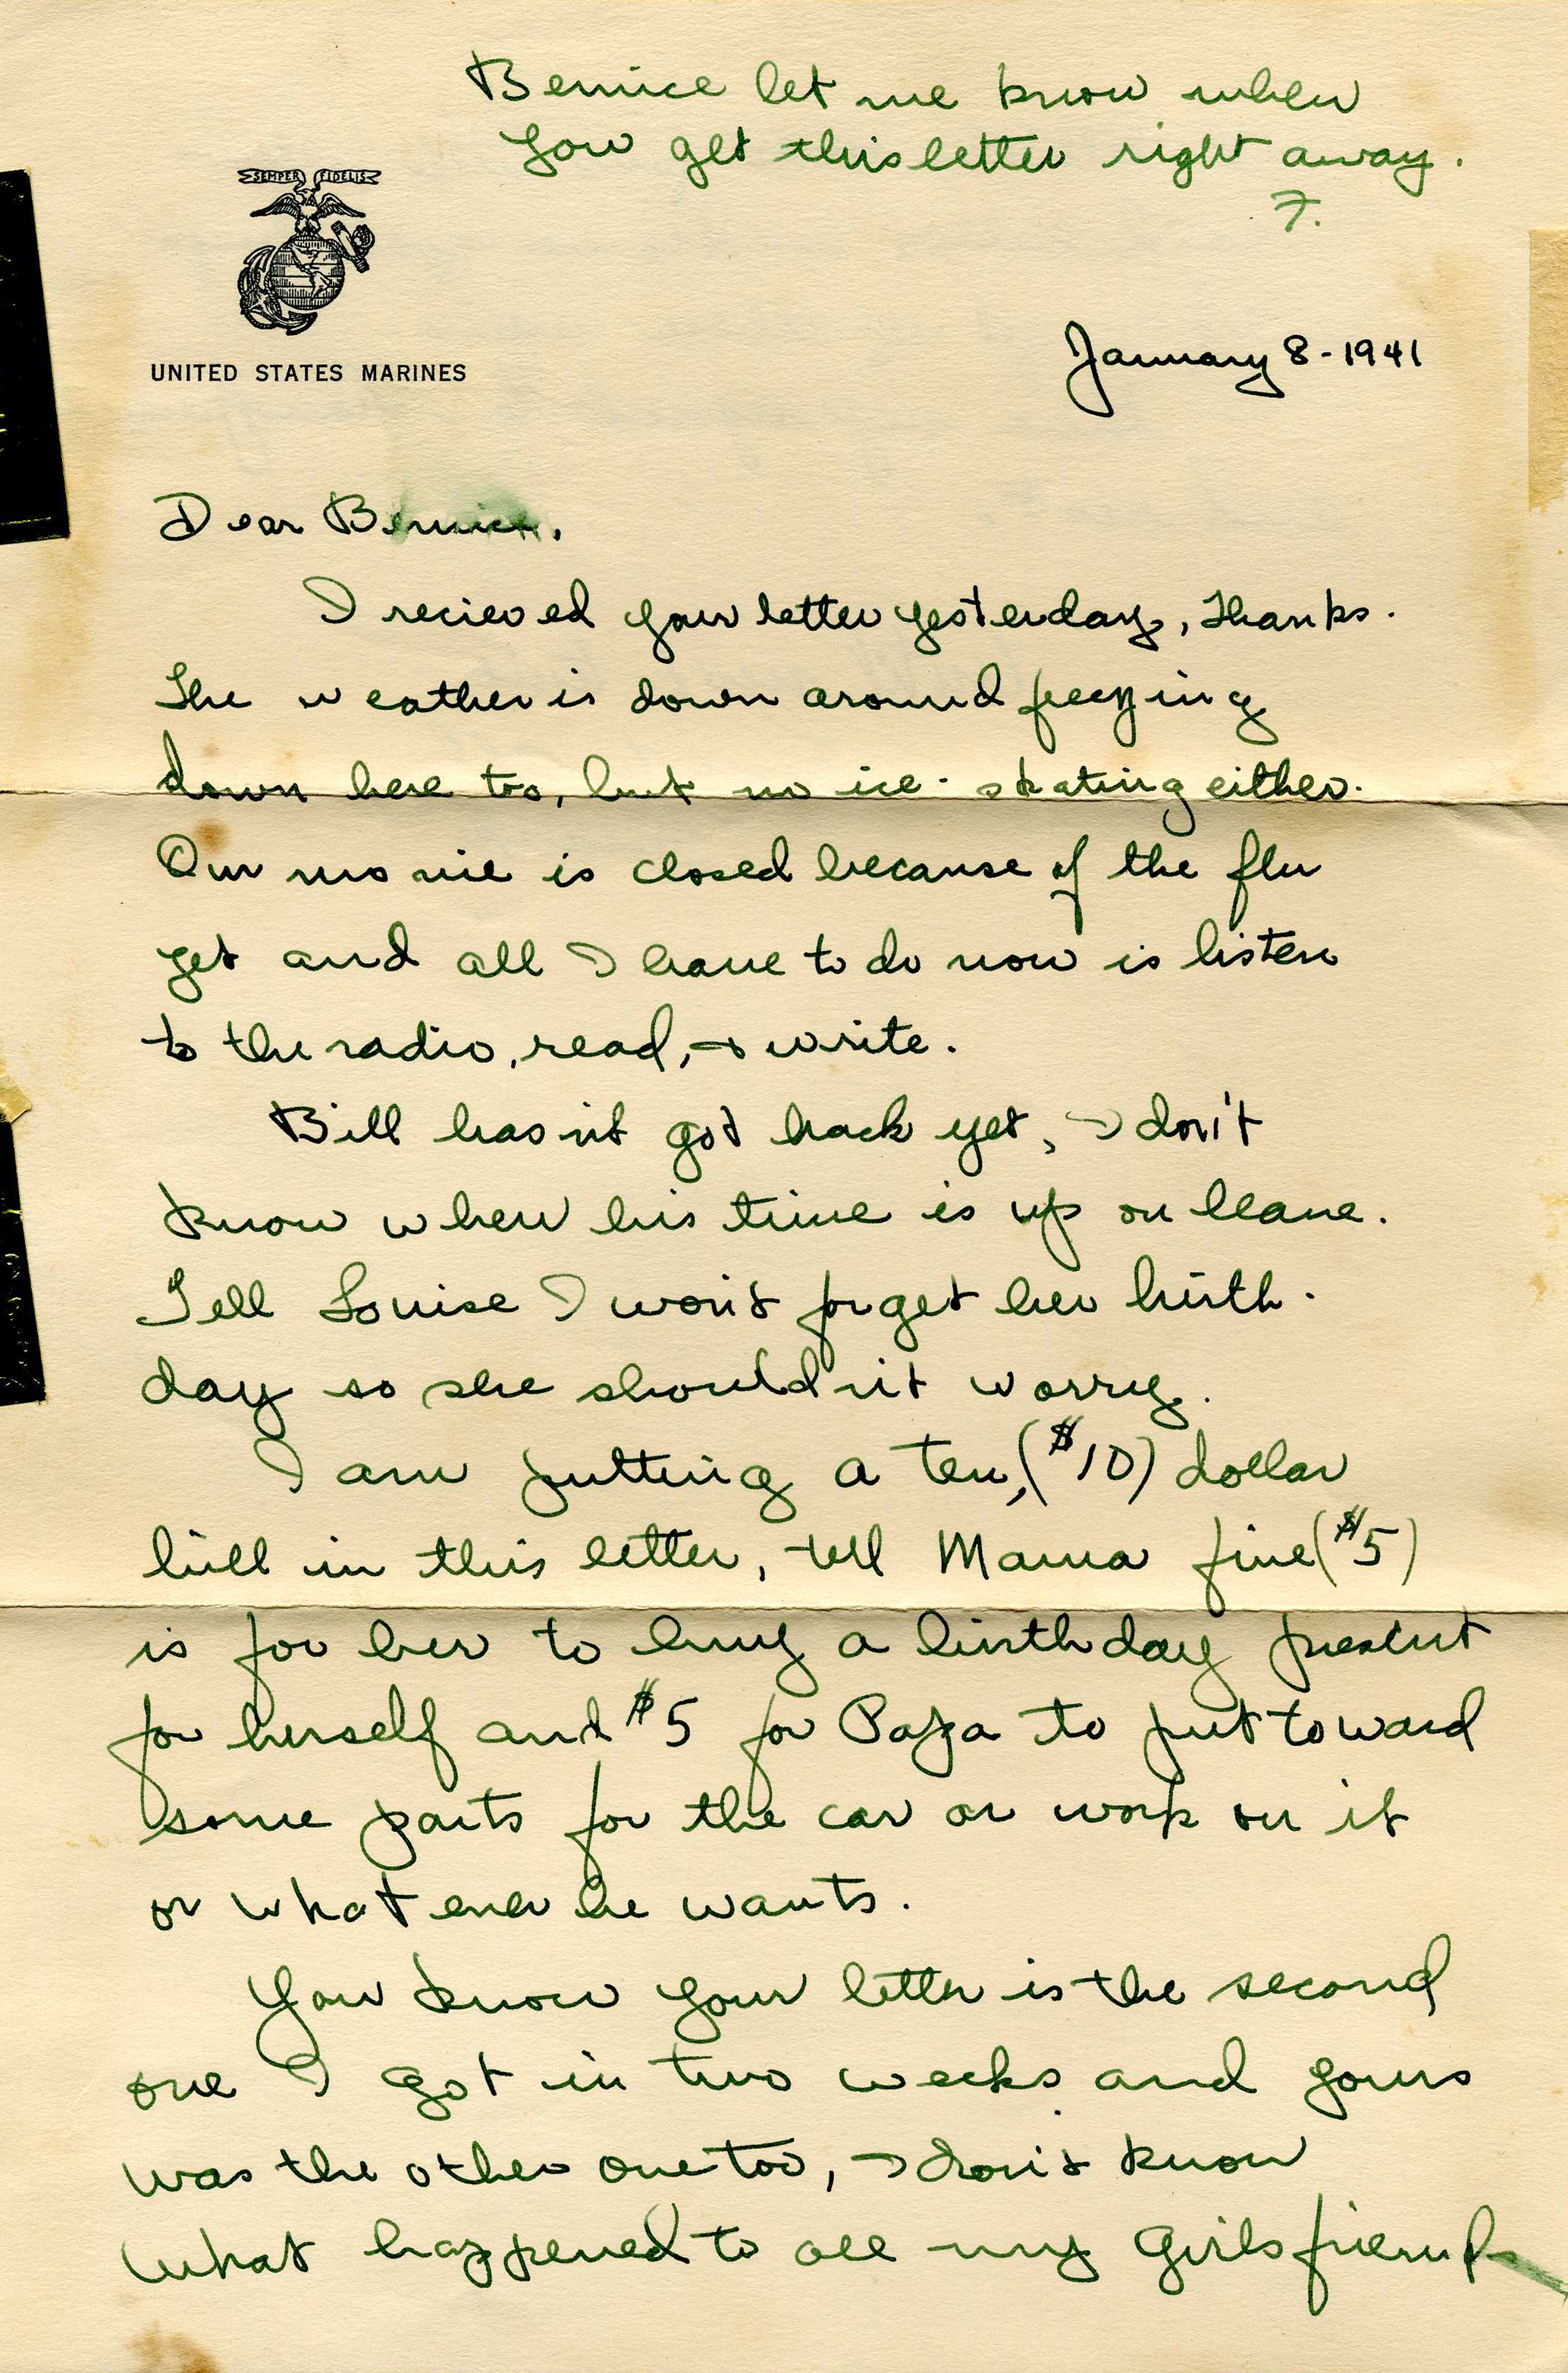 Bernice let me know when
you get this letter right away.
F.
SEMPER FIDELIS
UNITED STATES MARINES
January 8-1941
Dear Bernice,
I recieved your letter yesterday, Thanks.
The weather is down around freezing
down here too, but no ice-skating either.
Our movie is closed because of the flu
yet and all I have to do now is listen
to the radio, read, + write.
Bill hasn't got back yet, I don't
know when his time is up on leave.
Tell Louise I won't forget her birth-
day so she shouldn't worry.
I am putting a ten, ($10) dollar
bill in this letter, tell Mama five ($5)
is for her to buy a birthday present
for herself and $5 for Papa to put toward
some parts for the car or work on it
or what ever he wants.
You know your letter is the second
one I got in two weeks and yours
was the other one too, I don't know
what happened to all my girls friends